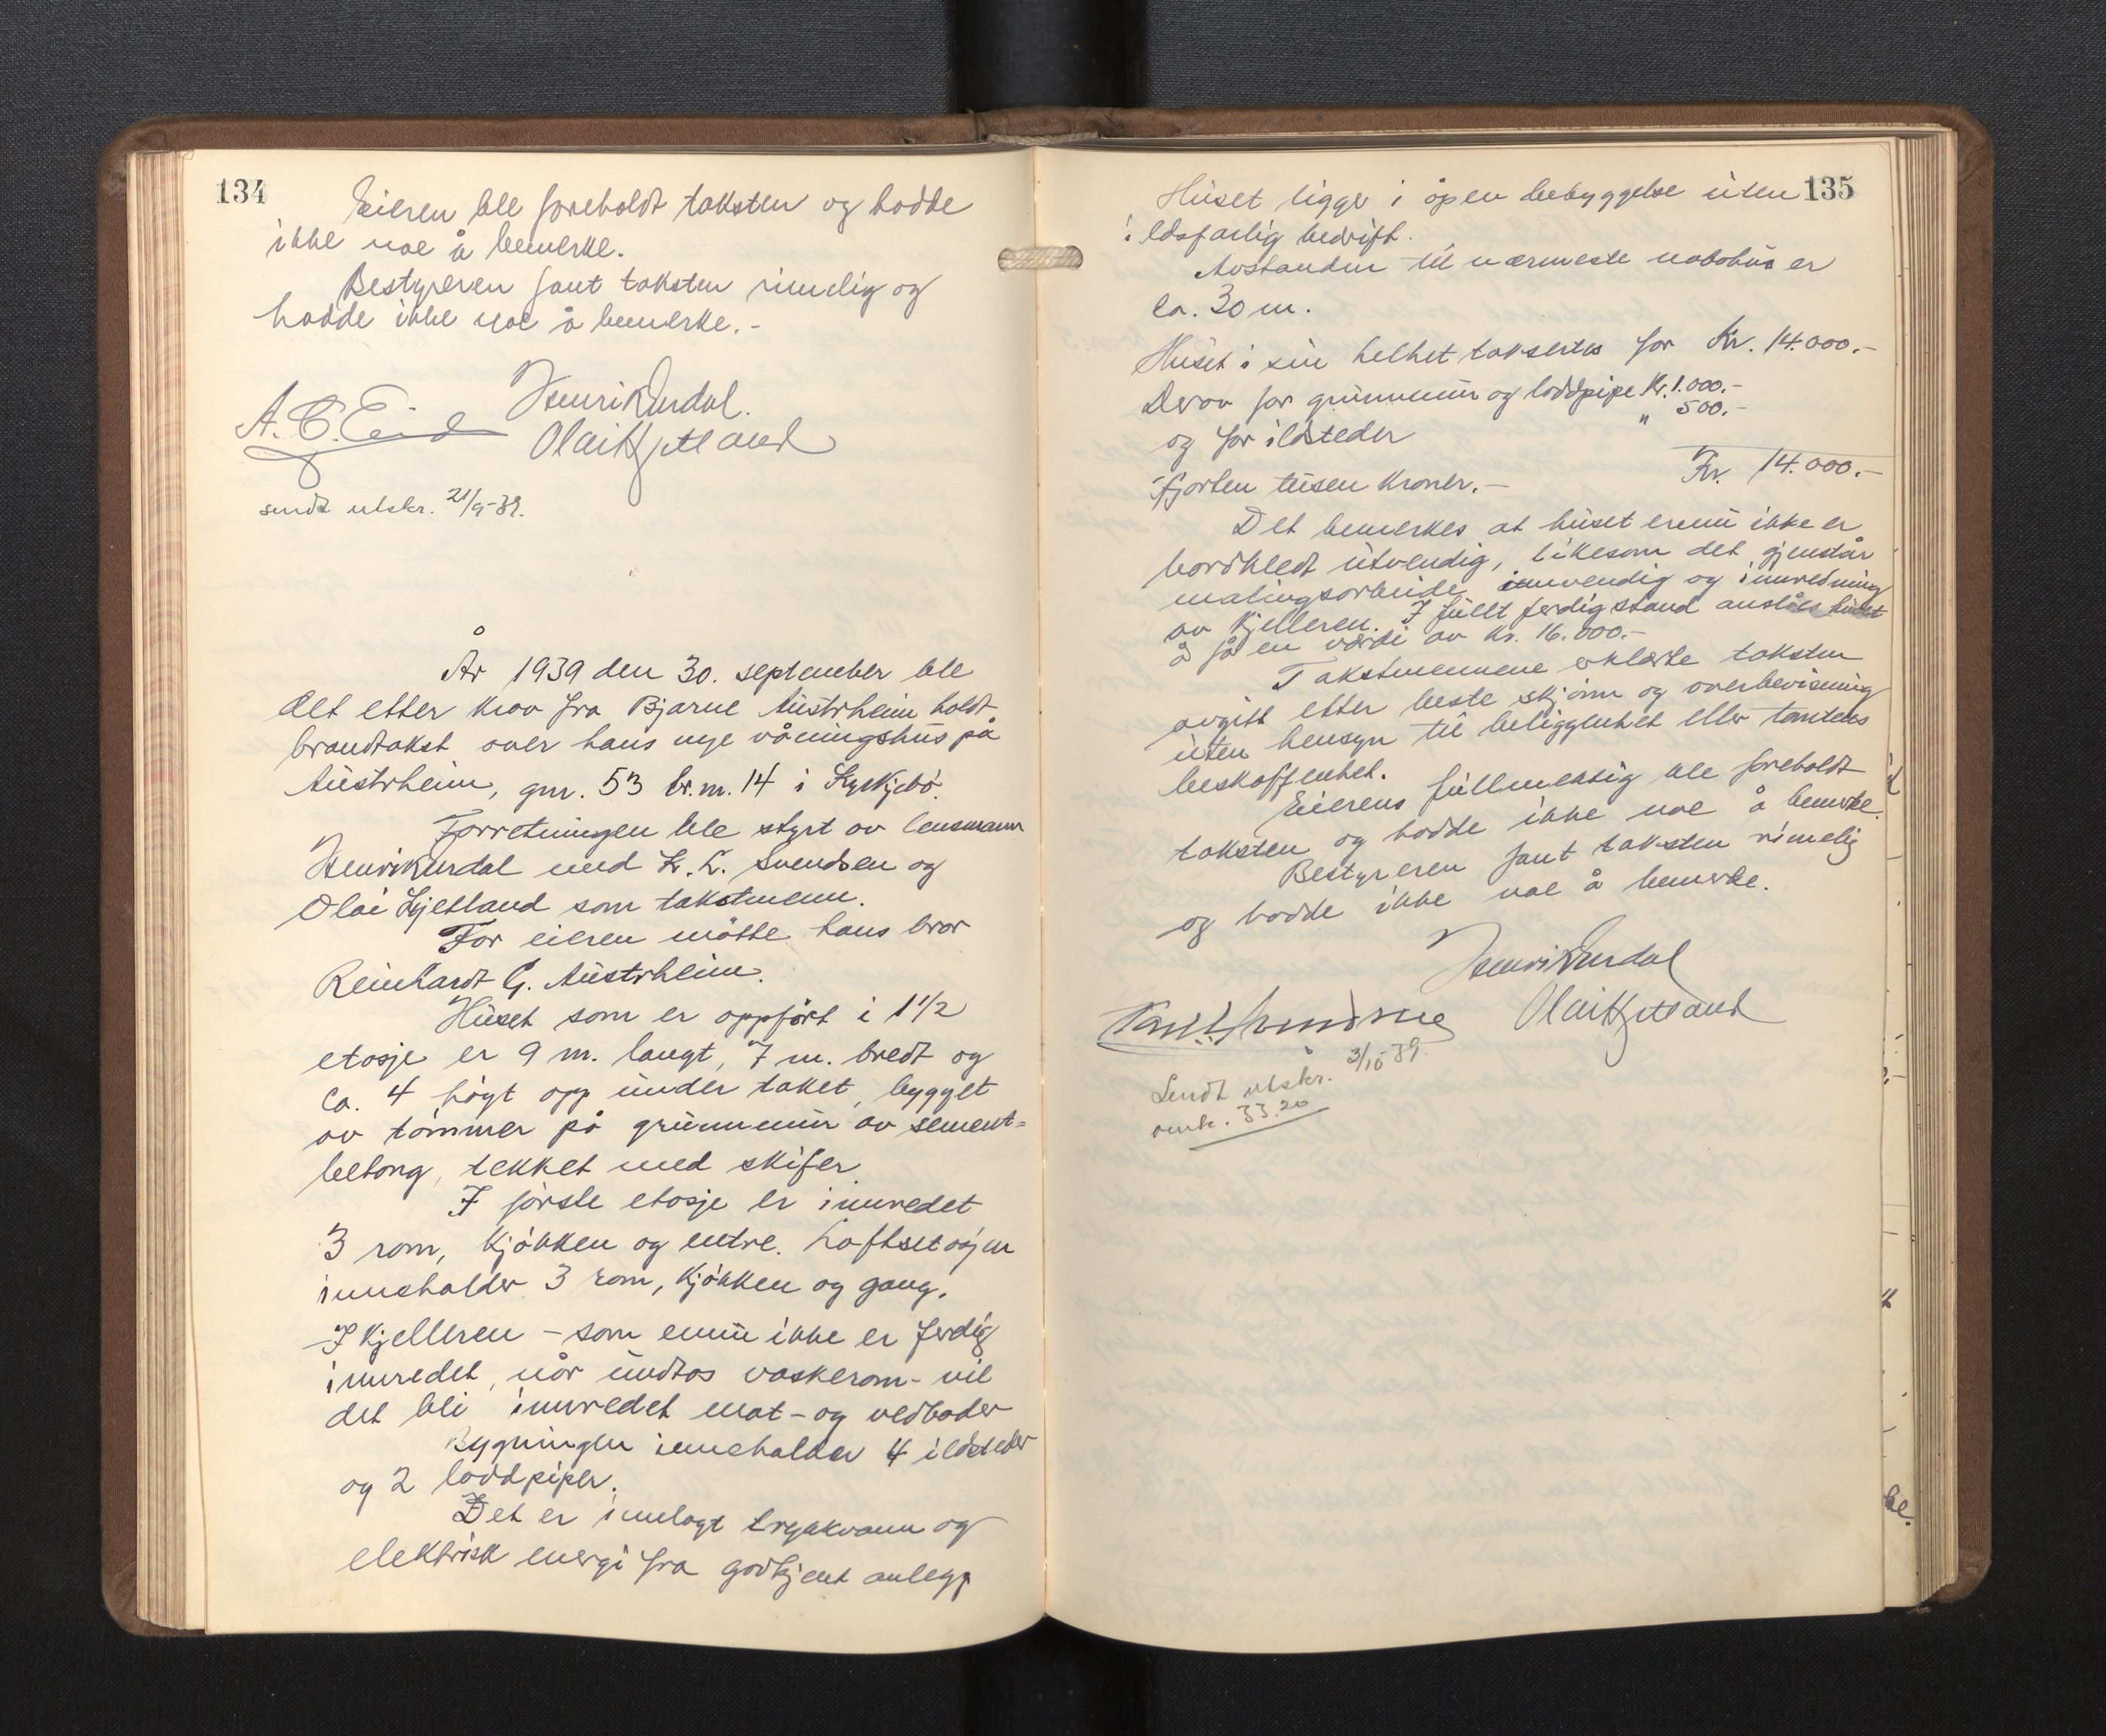 134
Eieren ble foreholdt taksten og hadde
ikke noe å bemerke.
Bestyreren fant taksten rimelig og
hadde ikke noe å bemerke.-
Henrik Urdal.
A. C. Eide
Olai Hjetland
sendt utskr. 21/9-39.
År 1939 den 30. september ble
det etter krav fra Bjarne Austrheim holdt
brandtakst over hans nye våningshus på
Austrheim, gnr. 53 br.nr. 14 i Kyrkjebø.
Forretningen ble styrt av lensmann
Henrik Urdal med K. L. Svendsen og
Olai Hjetland som takstmenn.
For eieren møtte hans bror
Reinhardt G. Austrheim.
Huset som er oppført i 1 1/2
etasje er 9 m. langt, 7 m. bredt og
ca. 4 høgt opp under taket, bygget
av tømmer på grunnmur av sement=
betong, tekket med skifer.
I første etasje er innredet
3 rom, kjøkken og entre. Loftsetasjen
inneholder 3 rom, kjøkken og gang.
I kjelleren - som ennu ikke er ferdig
innredet, når undtas vaskerom - vil
det bli innredet mat- og vedboder
Bygningen inneholder 4 ildsteder
og 2 loddpiper.
Det er innlagt trykkvann og
elektrisk energi fra godkjent anlegg
135
Huset ligger i åpen bebyggelse uten
ildsfarlig bedrift.
Avstanden til nærmeste nabohus er
ca. 30 m.
Huset i sin helhet takseres for Kr. 14.000.-
Derav for grunnmur og loddpipe Kr. 1.000.-
og for ildsteder " 500.-
Fjorten tusen kroner.- Kr. 14.000.-
Det bemerkes at huset ennu ikke er
bordkledt utvendig, likesom det gjenstår
malingsarbeide innvendig og innredning
av kjelleren. I fullt ferdig stand anslåes huset
å få en verdi av kr. 16.000.-
Takstmennene erklærte taksten
avgitt etter beste skjønn og overbevisning
uten hensyn til beliggenhet eller tomtens
beskaffenhet.
Eierens fullmektig ble foreholdt
taksten og hadde ikke noe å bemerke.
Bestyreren fant taksten rimelig
og hadde ikke noe å bemerke.
Henrik Urdal
Olai Hjetland
Sendt utskr. 3/10-39.
omk. 33.20